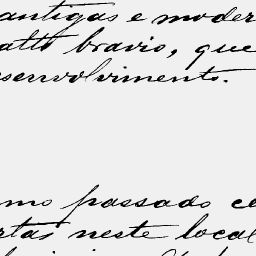 antigas e moder
atto bravio, que
senvolvimento.
mo passado co
rtas neste local